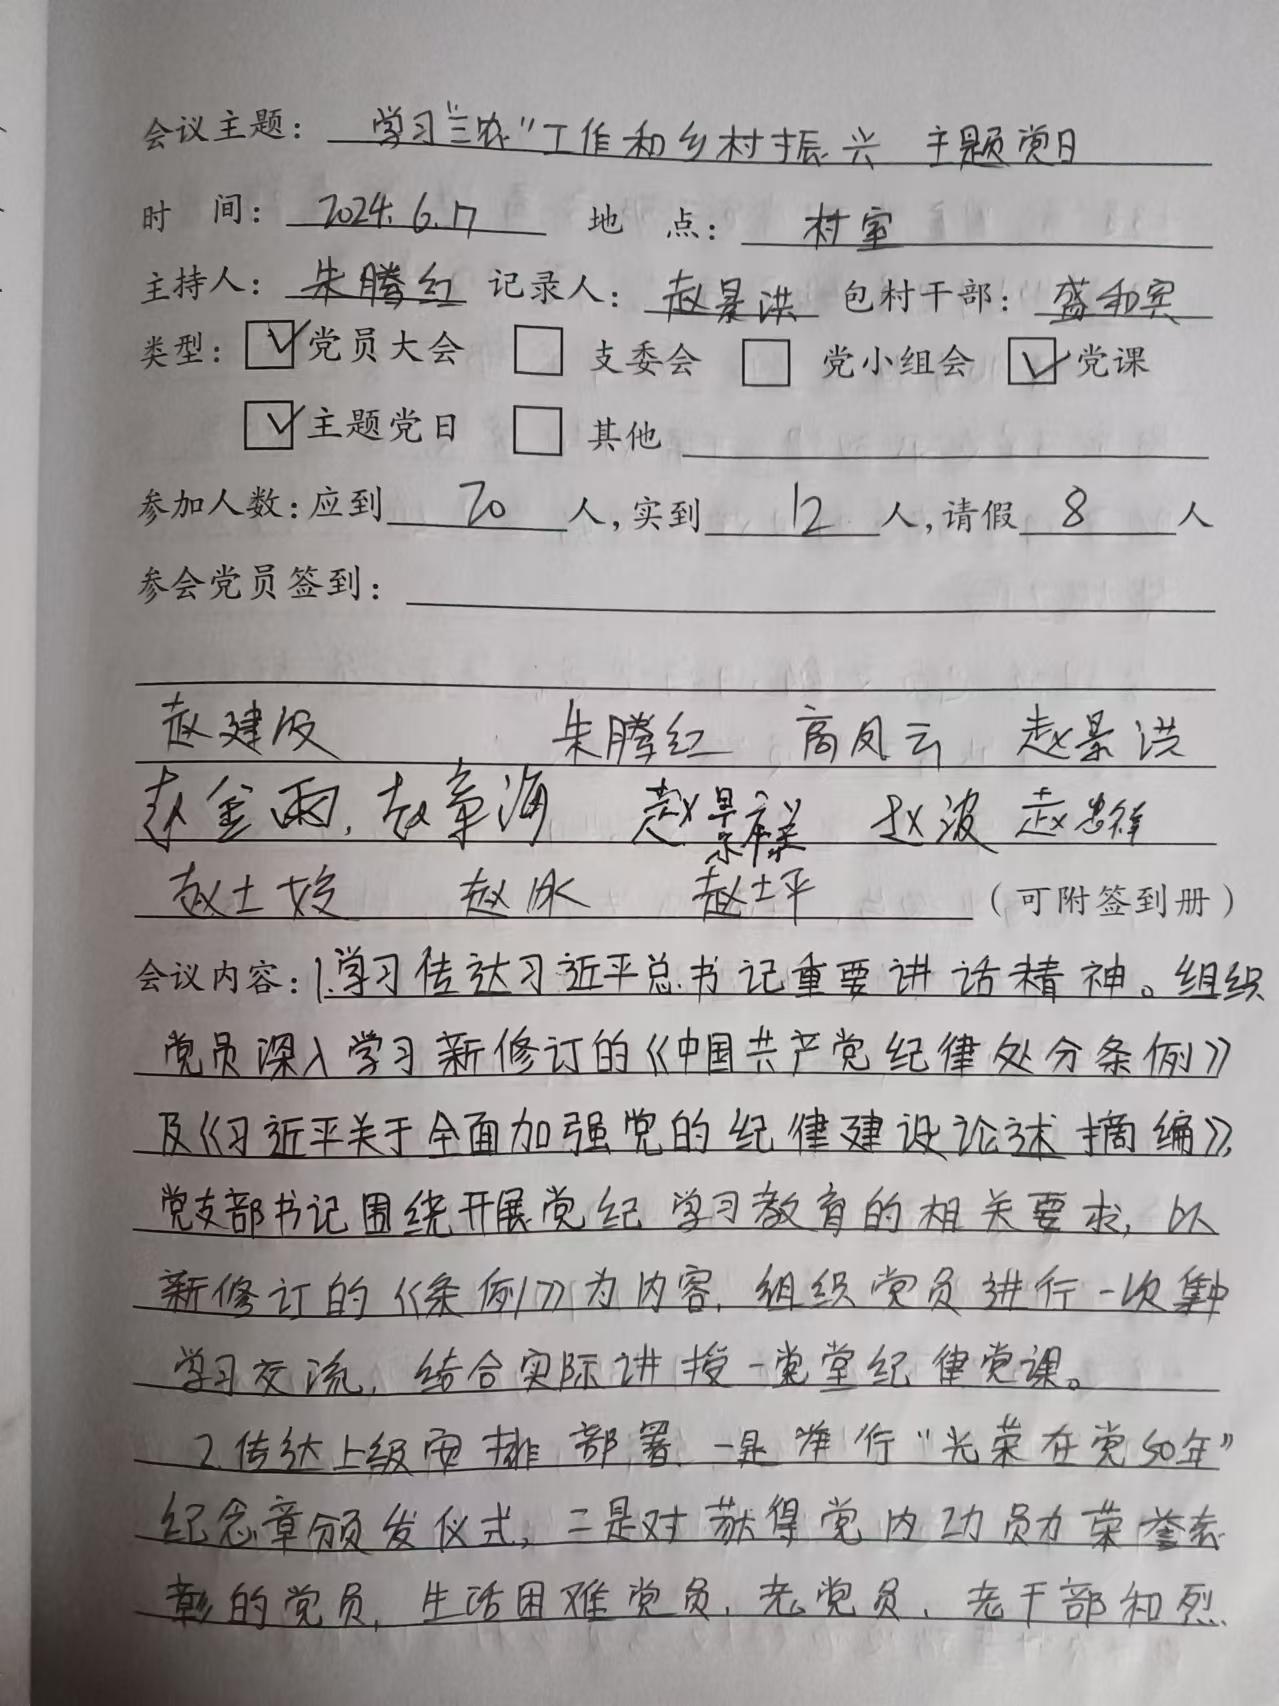 会议主题：学习“三农”工作和乡村振兴 主题党日
时 间：2024.6.17 地 点：村室
主持人：朱腾红 记录人：赵景洪 包村干部：盛和宾
类型：☑党员大会 □ 支委会 □ 党小组会 ☑党课
☑主题党日 □ 其他
参加人数：应到 20 人，实到 12 人，请假 8 人
参会党员签到：
赵建波 朱腾红 高凤云 赵景洪
赵金雨，赵章海 赵景禄 赵波 赵忠祥
赵士姣 赵冰 赵士坪 （可附签到册）
会议内容：1.学习传达习近平总书记重要讲话精神。组织
党员深入学习新修订的《中国共产党纪律处分条例》
及《习近平关于全面加强党的纪律建设论述摘编》，
党支部书记围绕开展党纪学习教育的相关要求，以
新修订的《条例》为内容，组织党员进行一次集中
学习交流，结合实际讲授一党堂纪律党课。
2.传达上级安排部署，一是举行“光荣在党50年”
纪念章颁发仪式，二是对获得党内功员力荣誉表
彰的党员，生活困难党员，老党员，老干部和烈